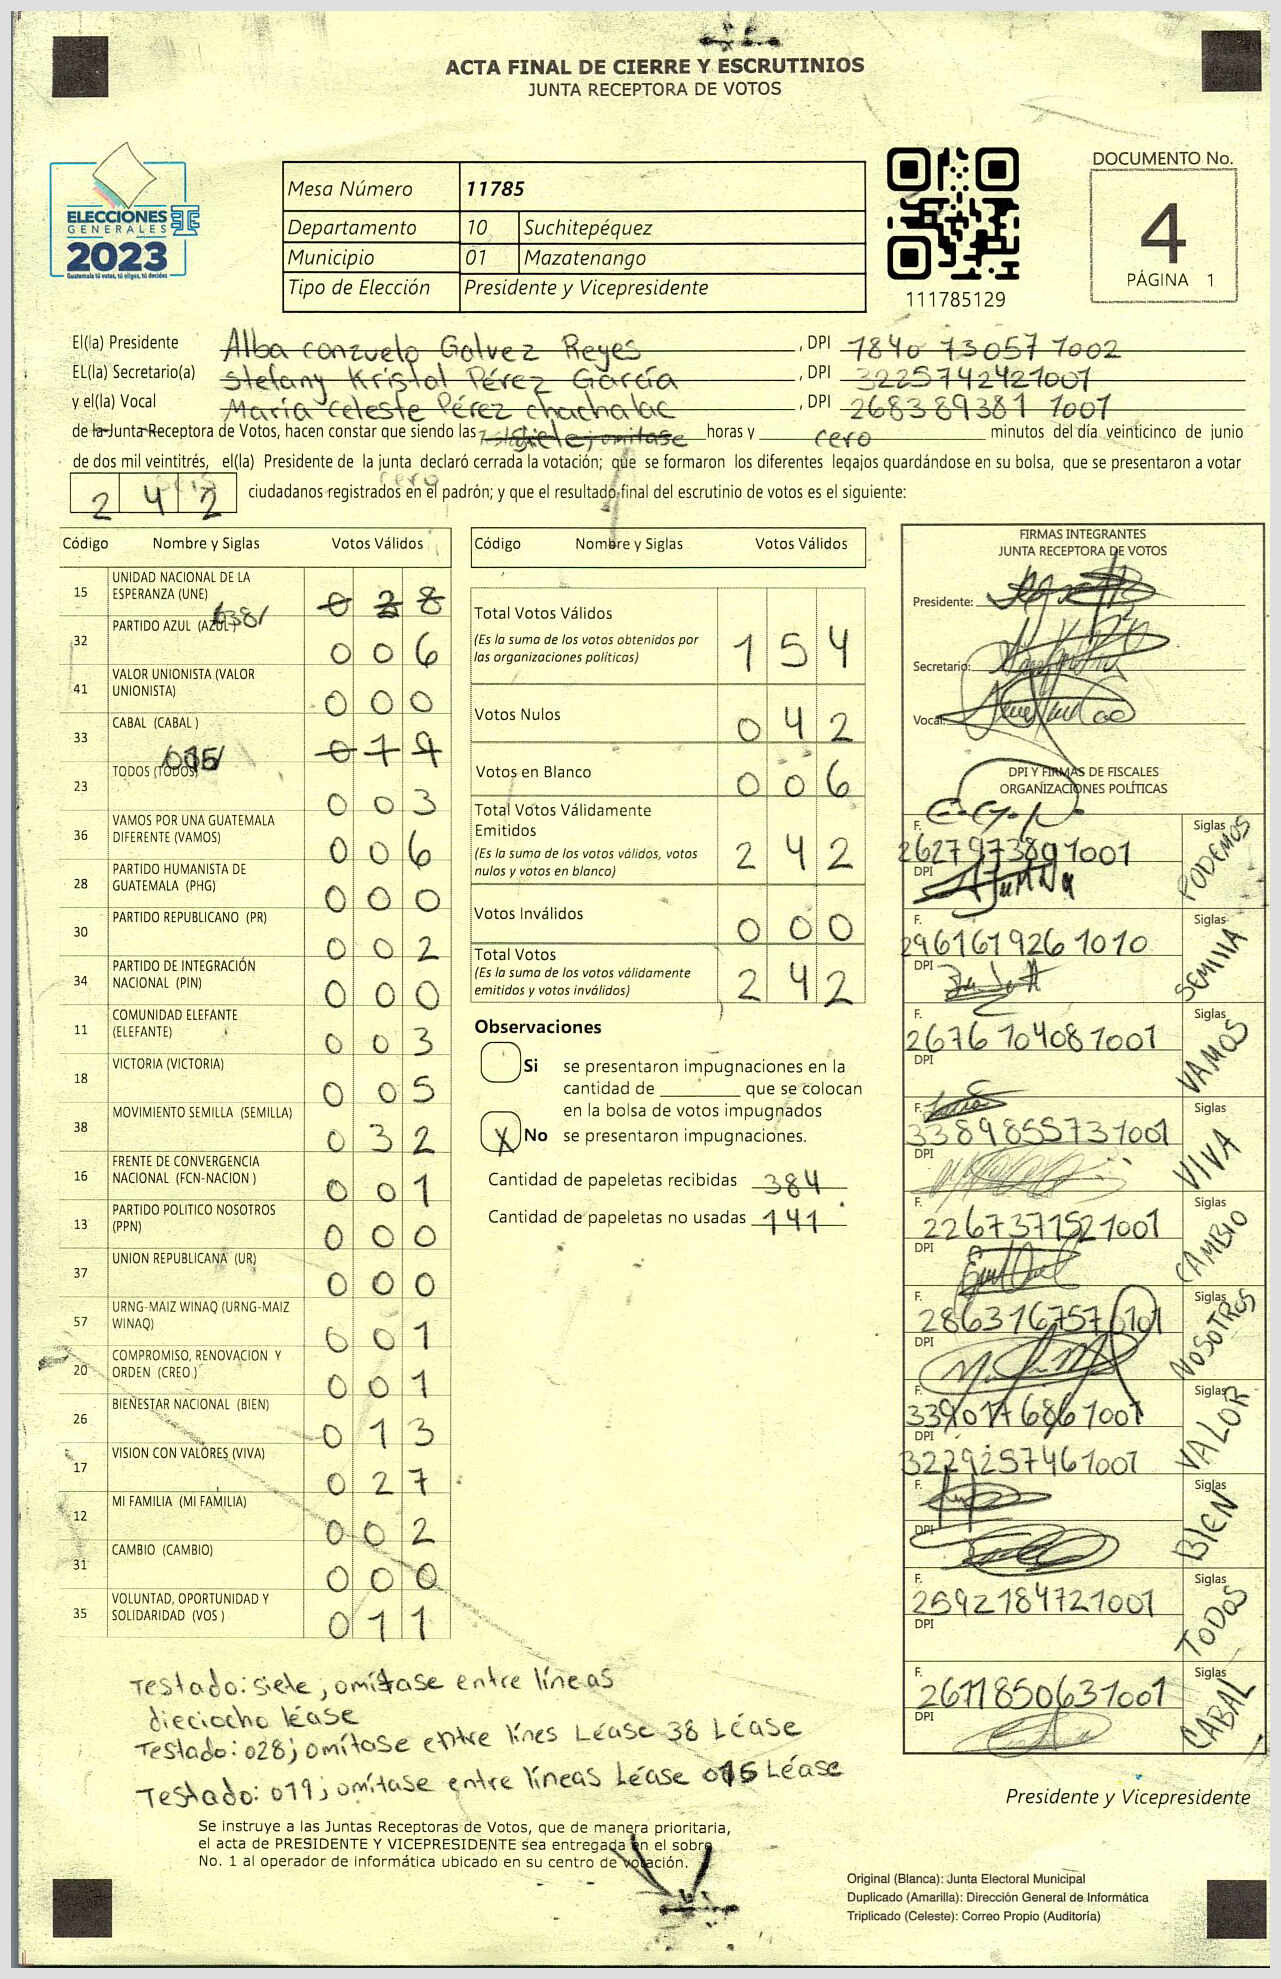 ACTA FINAL DE CIERRE Y ESCRUTINIOS
JUNTA RECEPTORA DE VOTOS
ELECCIONES
GENERALES
2023
Guatemala tú votas, tú eliges, tú decides
Mesa Número 11785
Departamento 10 Suchitepéquez
Municipio 01 Mazatenango
Tipo de Elección Presidente y Vicepresidente
111785129
DOCUMENTO No.
4
PÁGINA 1
El(la) Presidente Alba Conzuelo Galvez Reyes , DPI 1840 73057 1002
EL(la) Secretario(a) Stefany Kristal Pérez García , DPI 3225742421001
y el(la) Vocal María Celeste Pérez chachalac , DPI 268389381 1001
de la Junta Receptora de Votos, hacen constar que siendo las siete; omitase horas y cero minutos del día veinticinco de junio
de dos mil veintitrés, el(la) Presidente de la junta declaró cerrada la votación; que se formaron los diferentes legajos guardándose en su bolsa, que se presentaron a votar
242 ciudadanos registrados en el padrón; y que el resultado final del escrutinio de votos es el siguiente:
Código Nombre y Siglas Votos Válidos
15 UNIDAD NACIONAL DE LA ESPERANZA (UNE) 028
038
32 PARTIDO AZUL (AZUL) 006
41 VALOR UNIONISTA (VALOR UNIONISTA) 000
33 CABAL (CABAL ) 019
015
23 TODOS (TODOS) 003
36 VAMOS POR UNA GUATEMALA DIFERENTE (VAMOS) 006
28 PARTIDO HUMANISTA DE GUATEMALA (PHG) 000
30 PARTIDO REPUBLICANO (PR) 002
34 PARTIDO DE INTEGRACIÓN NACIONAL (PIN) 000
11 COMUNIDAD ELEFANTE (ELEFANTE) 003
18 VICTORIA (VICTORIA) 005
38 MOVIMIENTO SEMILLA (SEMILLA) 032
16 FRENTE DE CONVERGENCIA NACIONAL (FCN-NACION ) 001
13 PARTIDO POLITICO NOSOTROS (PPN) 000
37 UNION REPUBLICANA (UR) 000
57 URNG-MAIZ WINAQ (URNG-MAIZ WINAQ) 001
20 COMPROMISO, RENOVACION Y ORDEN (CREO ) 001
26 BIENESTAR NACIONAL (BIEN) 013
17 VISION CON VALORES (VIVA) 027
12 MI FAMILIA (MI FAMILIA) 002
31 CAMBIO (CAMBIO) 000
35 VOLUNTAD, OPORTUNIDAD Y SOLIDARIDAD (VOS ) 011
Código Nombre y Siglas Votos Válidos
Total Votos Válidos 154
(Es la suma de los votos obtenidos por
las organizaciones politicas)
Votos Nulos 042
Votos en Blanco 006
Total Votos Válidamente
Emitidos 242
(Es la suma de los votos válidos, votos
nulos y votos en blanco)
Votos Inválidos 000
Total Votos 242
(Es la suma de los votos válidamente
emitidos y votos inválidos)
Observaciones
Si se presentaron impugnaciones en la
cantidad de ________ que se colocan
en la bolsa de votos impugnados
X No se presentaron impugnaciones.
Cantidad de papeletas recibidas 384
Cantidad de papeletas no usadas 141
FIRMAS INTEGRANTES
JUNTA RECEPTORA DE VOTOS
Presidente:
Secretario:
Vocal:
DPI Y FIRMAS DE FISCALES
ORGANIZACIONES POLÍTICAS
F. Siglas
2627973891001 PODEMOS
DPI
F. Siglas
2961619261010 SEMIIIA
DPI
F. Siglas
2676104081001 VAMOS
DPI
F. Siglas
3389855731001 VIVA
DPI
F. Siglas
2267371521001 CAMBIO
DPI
F. Siglas
2863167570101 NOSOTROS
DPI
F. Siglas
3390176861001 VALOR
DPI
3229257461001
F. Siglas
DPI BIEN
F. Siglas
2592184721001 TODOS
DPI
F. Siglas
2611850631001 CABAL
DPI
Testado: siete, omítase entre líneas
dieciocho léase
Testado: 028; omítase entre línes Léase 38 Léase
Testado: 019; omítase entre líneas Léase 015 Léase
Presidente y Vicepresidente
Se instruye a las Juntas Receptoras de Votos, que de manera prioritaria,
el acta de PRESIDENTE Y VICEPRESIDENTE sea entregada en el sobre
No. 1 al operador de informática ubicado en su centro de votación.
Original (Blanca): Junta Electoral Municipal
Duplicado (Amarilla): Dirección General de Informática
Triplicado (Celeste): Correo Propio (Auditoría)